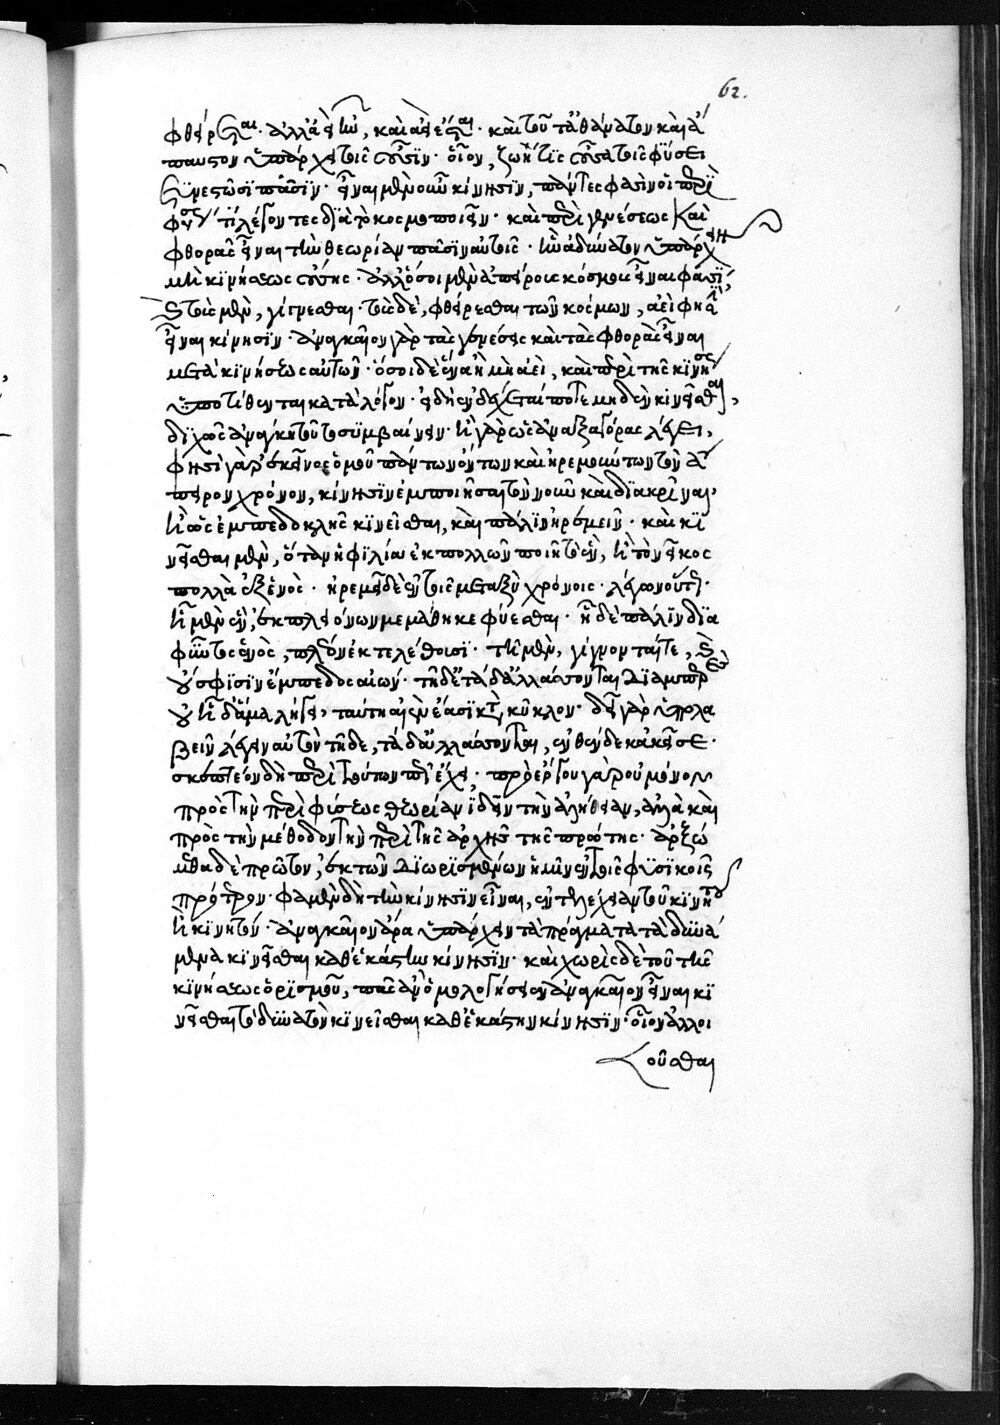 62.
φθείρεται· ἀλλ᾽ ἀεὶ ἦν, καὶ ἀεὶ ἔσται· καὶ τοῦτ᾽ ἀθάνατον καὶ ἄ
παυστον ὑπάρχει τοῖς οὖσιν· οἷον, ζωή τις οὖσα τοῖς φύσει
συνεστῶσι πᾶσιν· εἶναι μὲν οὖν κίνησιν, πάντες φασὶν οἱ περὶ
φύσεώς τι λέγοντες διὰ τὸ κοσμοποιεῖν· καὶ περὶ γενέσεως καὶ
φθορᾶς εἶναι τὴν θεωρίαν πᾶσιν αὐτοῖς· ἣν ἀδύνατον ὑπάρχειν
μὴ κινήσεως οὔσης· ἀλλ᾽ ὅσοι μὲν ἀπείρους κόσμους εἶναι φασί,
καὶ τοὺς μὲν, γίγνεσθαι· τοὺς δὲ, φθείρεσθαι τῶν κόσμων, ἀεί φησιν
εἶναι κίνησιν· ἀναγκαῖον γὰρ τὰς γενέσεις καὶ τὰς φθορὰς εἶναι
μετὰ κινήσεως αὐτῶν· ὅσοι δὲ ἕνα ἢ μὴ ἀεὶ, καὶ περὶ τῆς κινήσεως
ὑποτίθενται κατὰ λόγον· εἰ δὴ ἐνδέχεταί ποτε μηδὲν κινεῖσθαι,
διχῶς ἀνάγκη τοῦτο συμβαίνειν· ἢ γὰρ ὡς ἀναξαγόρας λέγει,
φησὶ γὰρ ἐκεῖνος ὁμοῦ πάντων ὄντων καὶ ἠρεμούντων τὸν ἄ
πειρον χρόνον, κίνησιν ἐμποιῆσαι τὸν νοῦν καὶ διακρῖναι·
ἢ ὡς ἐμπεδοκλῆς κινεῖσθαι, καὶ πάλιν ἠρεμεῖν· καὶ κι
νεῖσθαι μὲν, ὅταν ἡ φιλία ἐκ πολλῶν ποιῇ τὸ ἕν, ἢ τὸ νεῖκος
πολλὰ ἐξ ἑνὸς· ἠρεμεῖν δὲ ἐν τοῖς μεταξὺ χρόνοις· λέγων οὕτως·
ἧ μὲν ἓν, ἐκ πλεόνων μεμάθηκε φύεσθαι· ἠ δὲ πάλιν δια
φύντος ἑνὸς, πλέον ἐκτελέθουσι· τῇ μὲν, γίγνονταί τε, καὶ
οὔ σφισιν ἔμπεδος αἰών· τῇ δὲ τάδ᾽ ἀλλάσσονται διαμπερὲς
οὐ ἢ δ᾽ ἅμα λήγει, ταύτῃ αἰὲν ἔασι κατὰ κύκλον· δεῖ γὰρ ὑπολα
βεῖν λέγειν αὐτὸν τῇδε, τάδ᾽ ἀλλάσσονται, ἐνθένδε κἀκεῖσε·
σκεπτέον δὴ περὶ τούτων πῶς ἔχει· πρὸ ἔργου γὰρ οὐ μόνον
πρὸς τὴν περὶ φύσεως θεωρίαν ἰδεῖν τὴν ἀλήθειαν, ἀλλὰ καὶ
πρὸς τὴν μέθοδον τὴν περὶ τῆς ἀρχῆς τῆς πρώτης· ἀρξώ
μεθα δὲ πρῶτον, ἐκ τῶν διωρισμένων ἡμῖν ἐν τοῖς φυσικοῖς
πρότερον· φαμὲν δὴ τὴν κίνησιν εἶναι, ἐντελέχειαν τοῦ κινητοῦ
ἧ κινητόν· ἀναγκαῖον ἄρα ὑπάρχειν τὰ πράγματα τὰ δυνά
μενα κινεῖσθαι καθ᾽ ἑκάστην κίνησιν· καὶ χωρὶς δὲ τοῦ τῆς
κινήσεως ὁρισμοῦ, πᾶς ἂν ὁμολογήσειεν ἀναγκαῖον εἶναι κι
νεῖσθαι τὸ δυνατὸν κινεῖσθαι καθ᾽ ἑκάστην κίνησιν· οἷον ἀλλοι
οῦσθαι